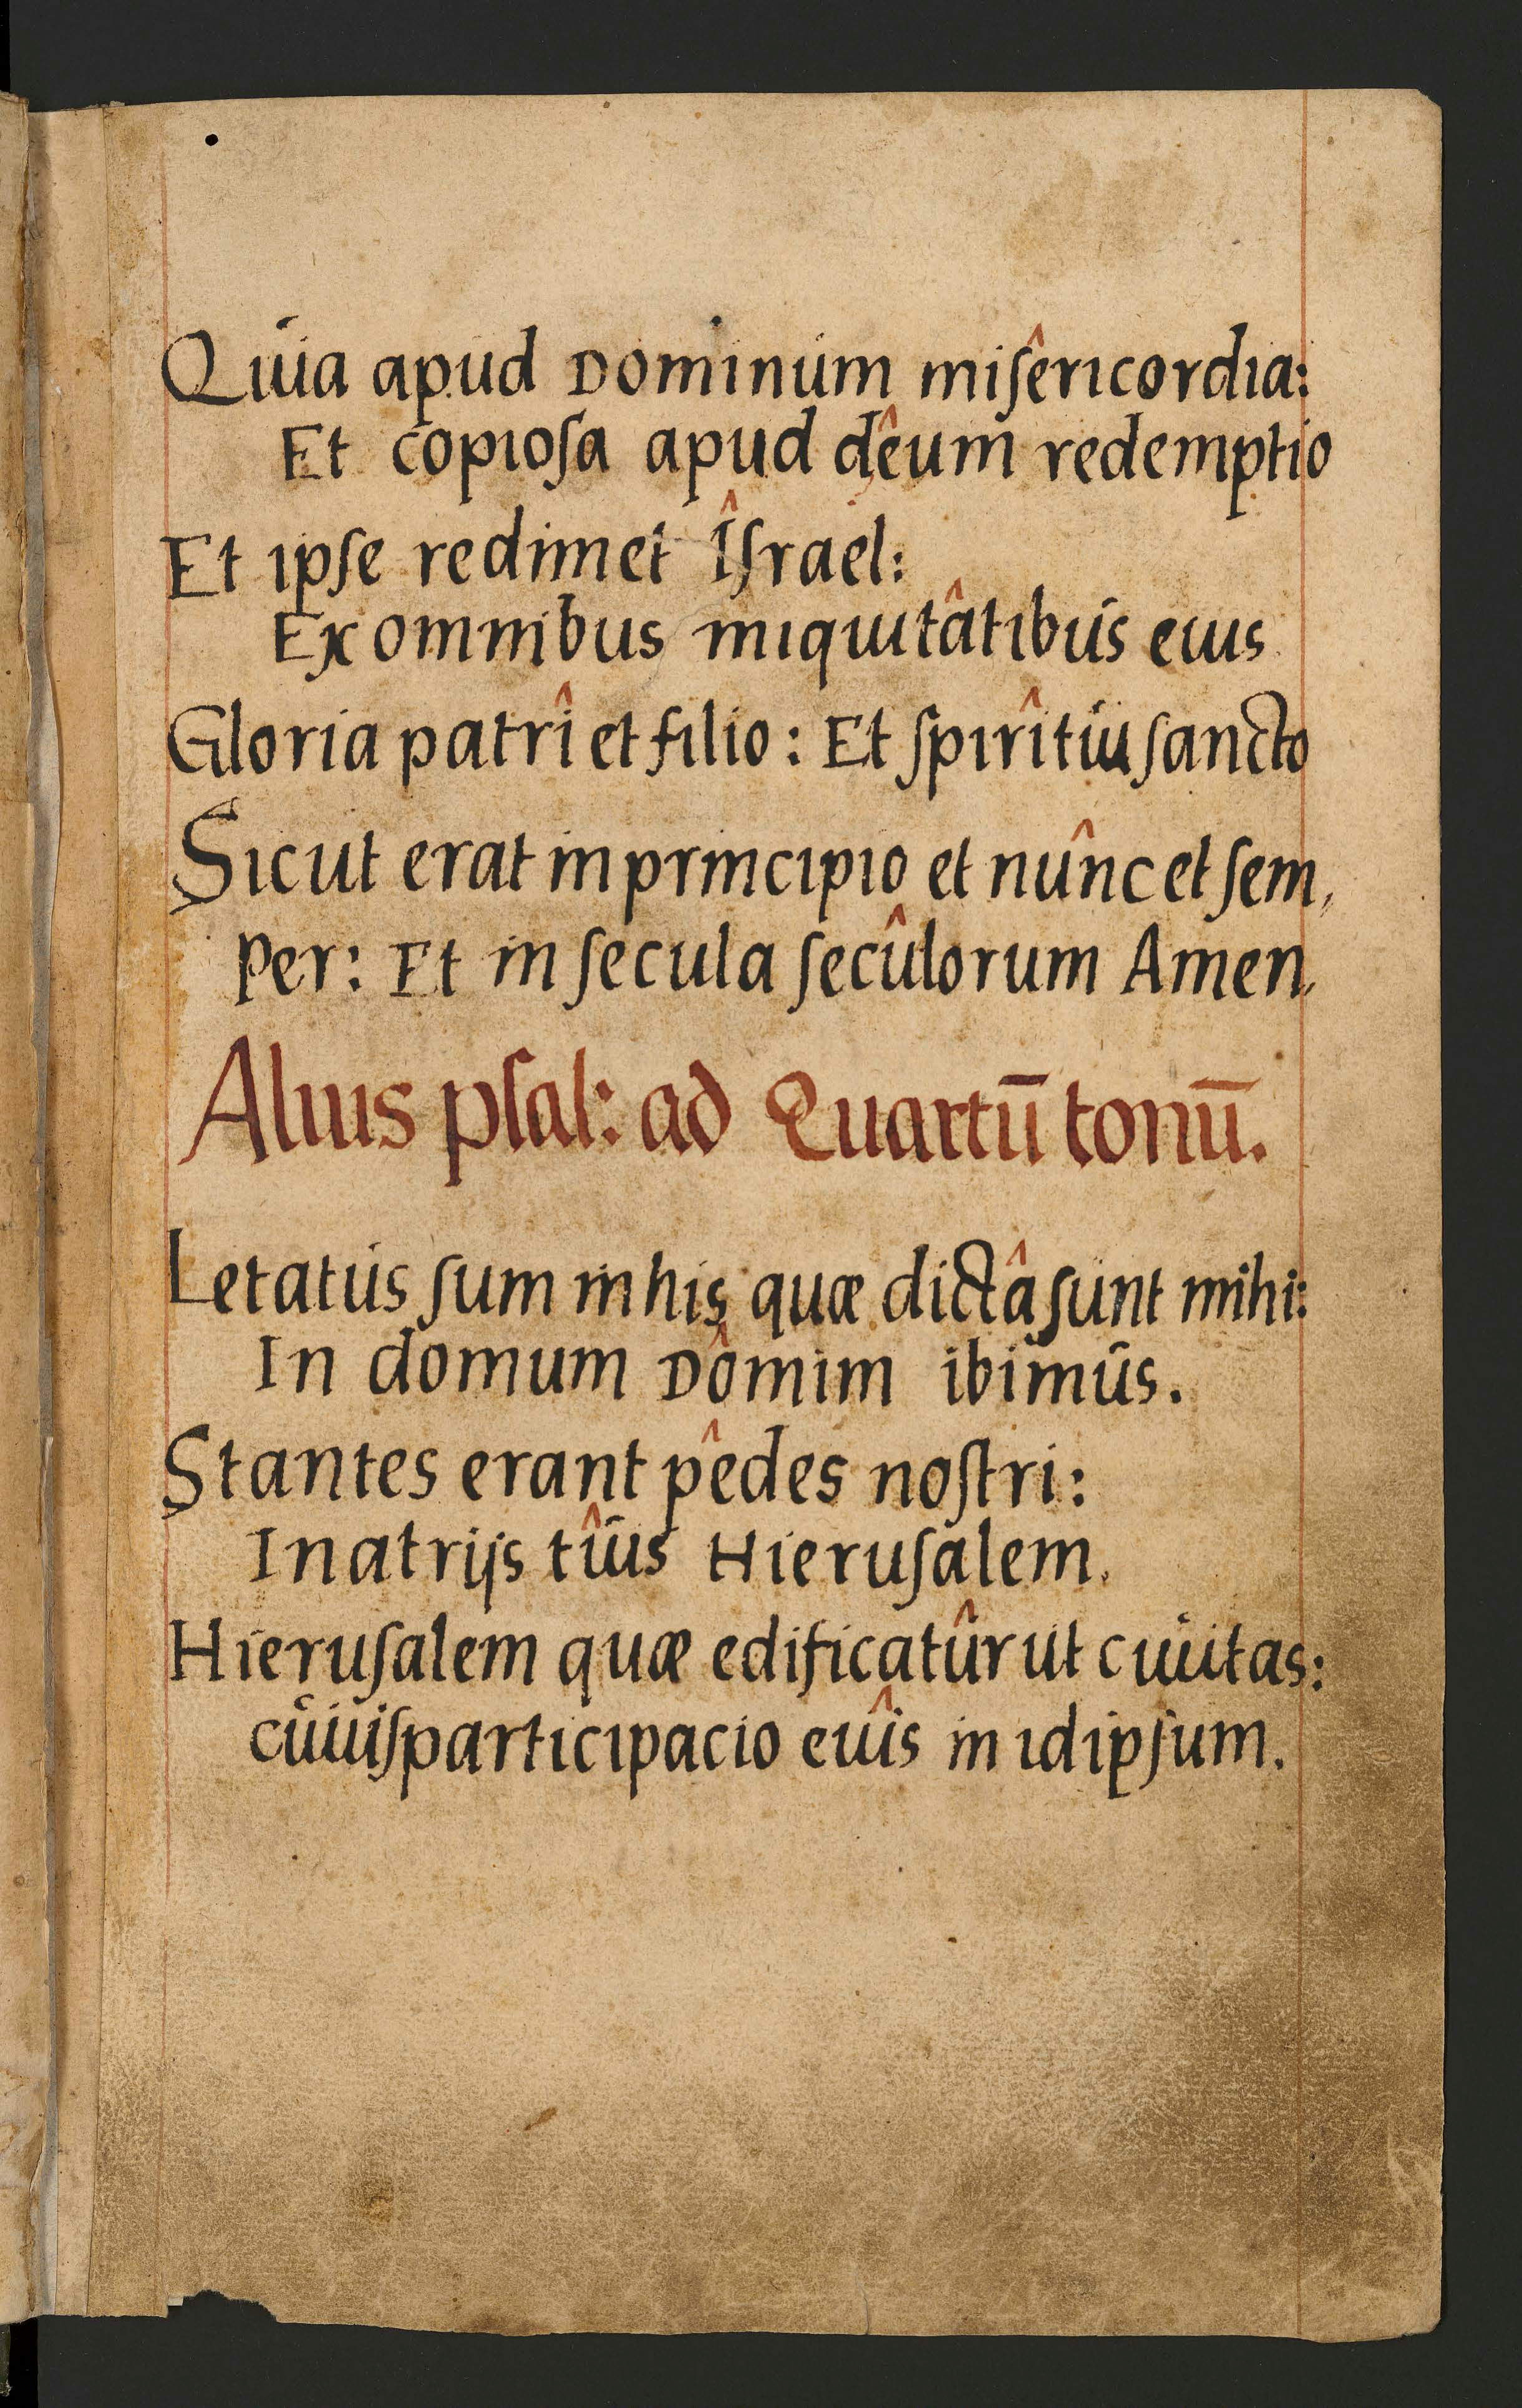 Quia apud Dominum miſêricordia:
Et copioſa apud dêum redemptio
Et ipſe redimet Îſrael:
Ex omnibus iniquitâtibus eius
Gloria patrî et filio: Et ſpirîtui ſancto
Sicut erat in principio et nûnc et ſem,
per: Et in ſecula ſecûlorum Amen,
Alius pſal: ad Quartū tonū.
Letatus ſum in his quæ dictâ ſunt mihi:
In domum Dômini ibimus.
Stantes erant pêdes noſtri:
In atrijs tûis Hieruſalem.
Hieruſalem quæ edificatûr ut ciuitas:
cuiuiſparticipacio eiûs in idipſum.